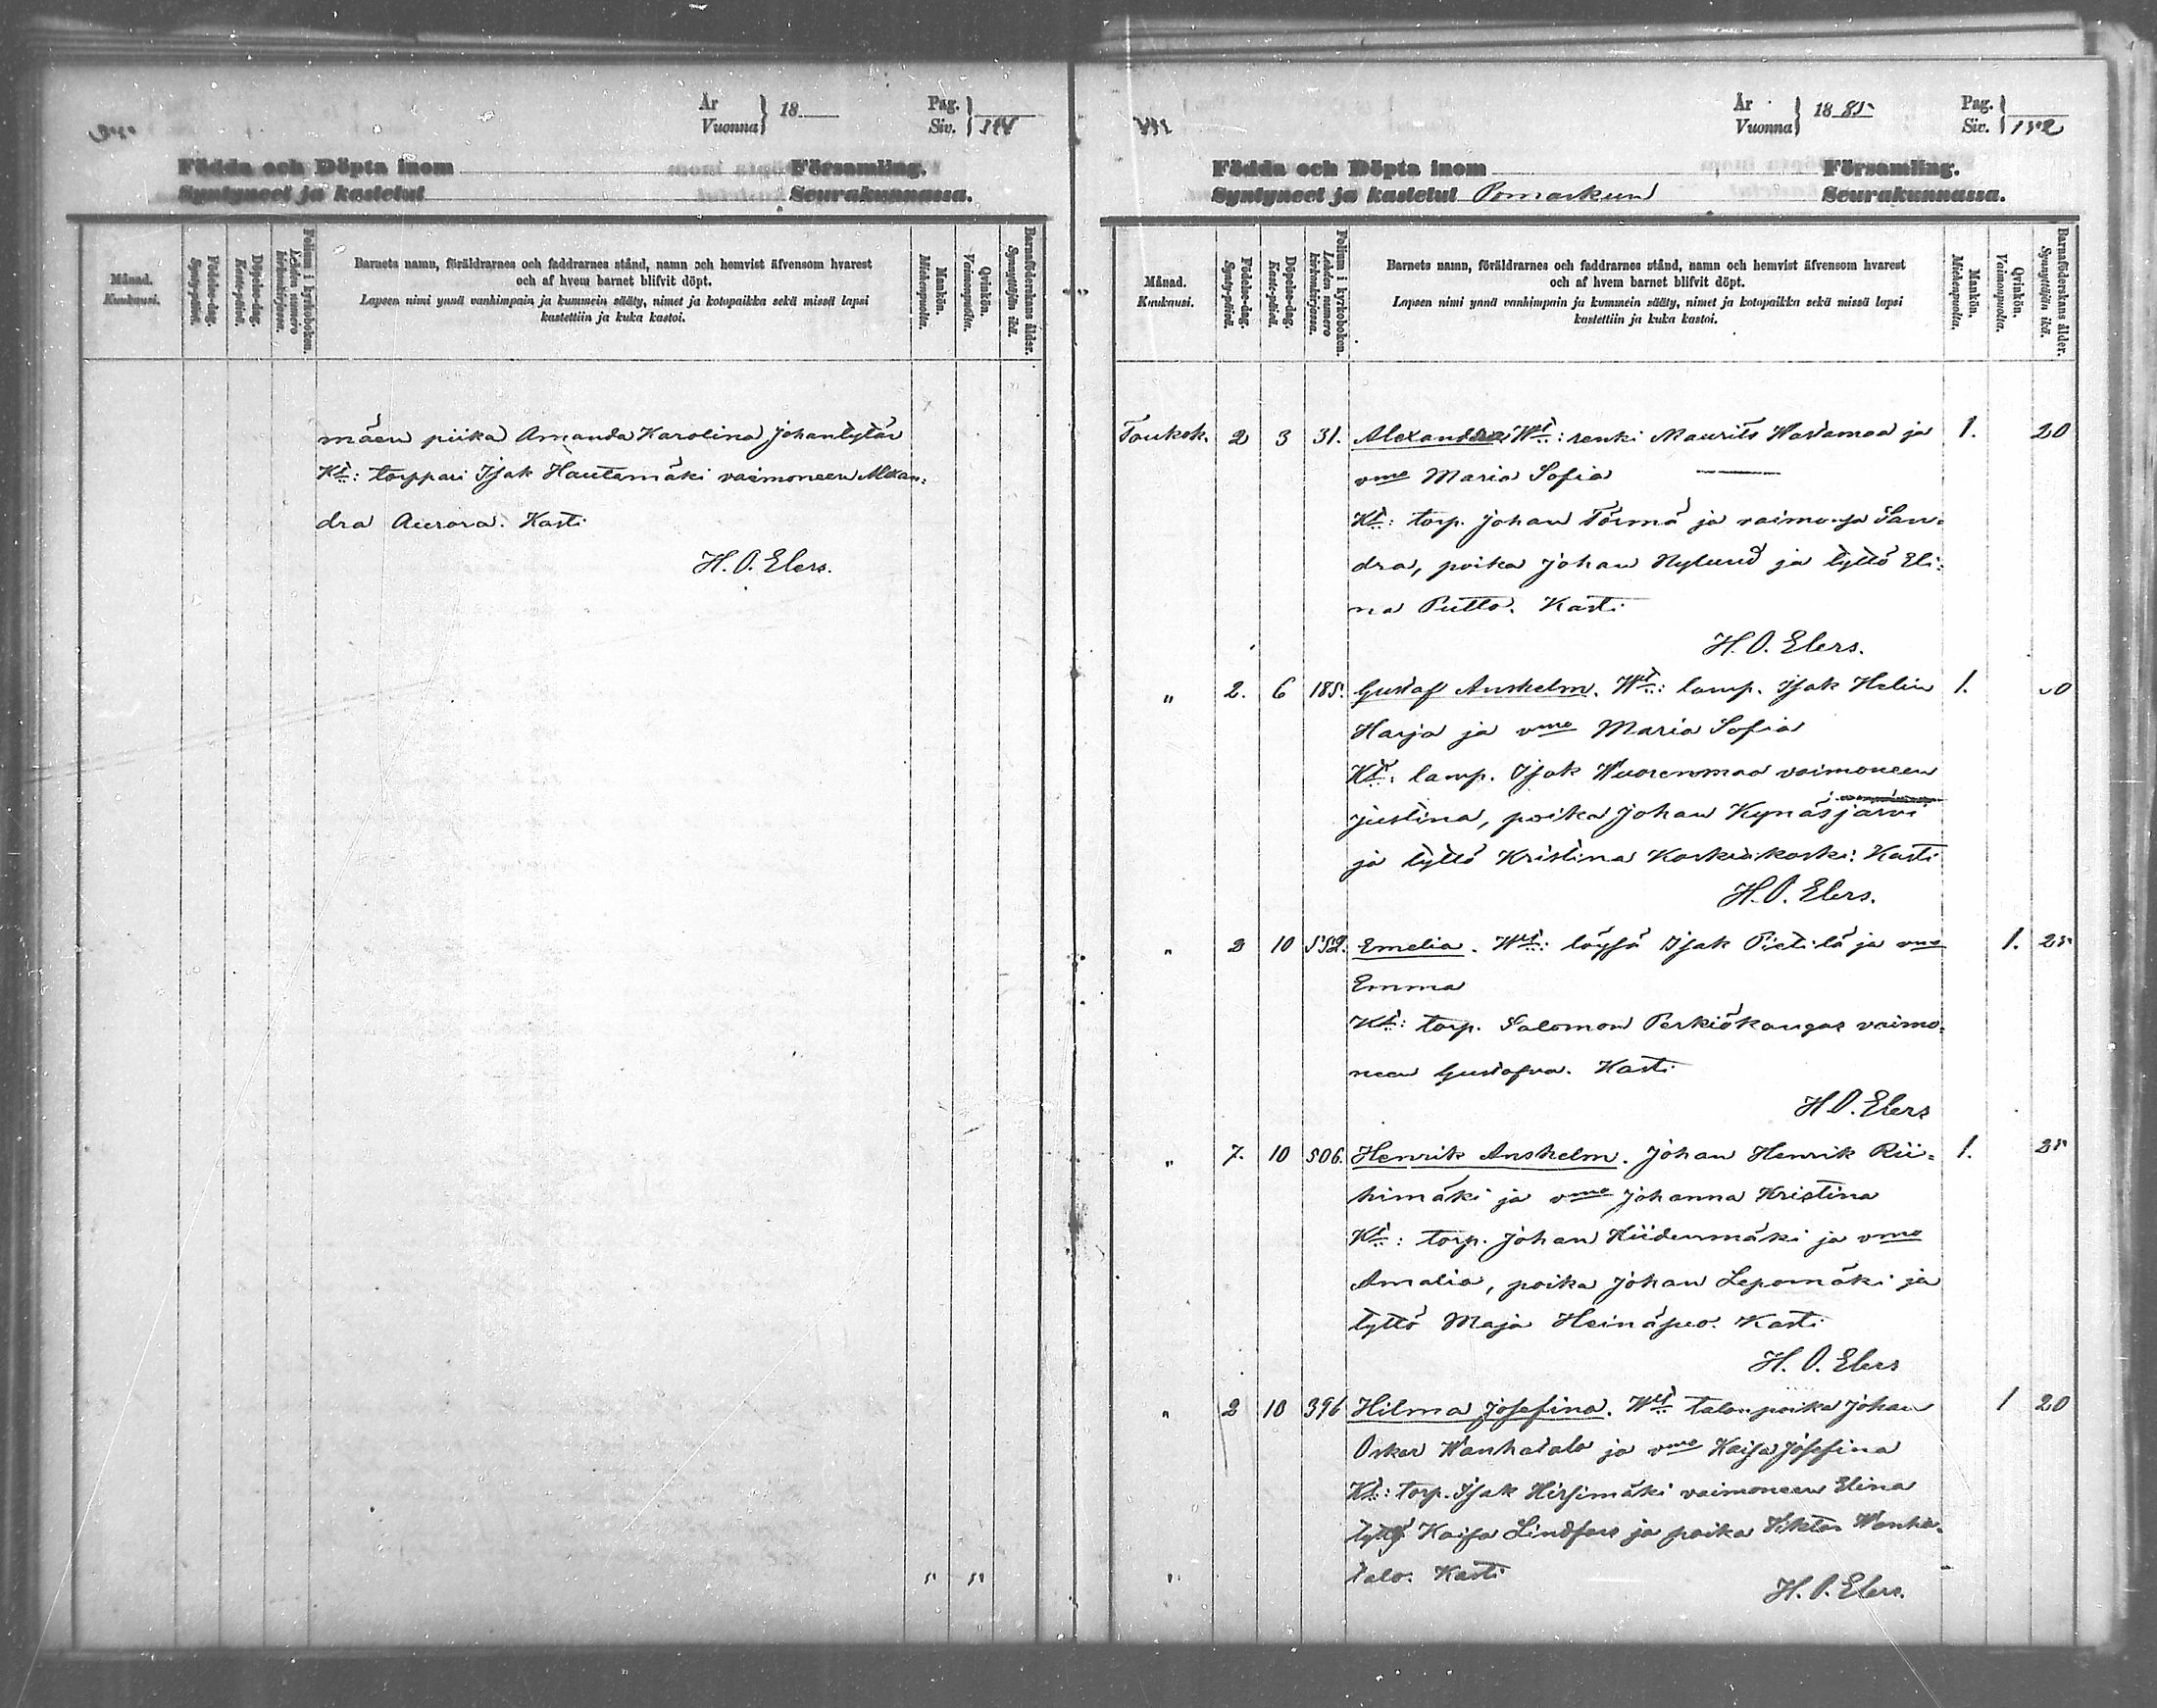 År
Vuonna } 18
Pag.
Siv.
Födda och Döpta inom Församling.
Syntyneet ja kastetut Seurakunnassa.
Månad.
Kuukausi.
Födelse-dag.
Synty-päivä.
Döpelse-dag.
Kaste-päivä.
Folium i kyrkoboken.
Lehden numero kirkonkirjassa.
Barnets namn, föräldrarnes och faddrarnes stånd, namn och hemvist äfvensom hvarest
och af hvem barnet blifvit döpt.
Lapsen nimi ynnä vanhimpain ja kummein sääty, nimet ja kotopaikka sekä missä lapsi
kastettiin ja kuka kastoi.
Mankön.
Miehenpuolta.
Qvinkön.
Vaimonpuolta.
Barnaföderskans ålder.
Synnyttäjän ikä.
mäen piika Amanda Karolina Johantytär
Kt: torppari Isak Hautamäki vaimoneen Alexan-
dra Aurora. Kasti
H. O. Elers.
5 5
År
Vuonna } 1885
Pag.
Siv. } 152
Födda och Döpta inom Församling.
Syntyneet ja kastetut Pomarkun Seurakunnassa.
Månad.
Kuukausi.
Födelse-dag.
Synty-päivä.
Döpelse-dag.
Kaste-päivä.
Folium i kyrkoboken.
Lehden numero kirkonkirjassa.
Barnets namn, föräldrarnes och faddrarnes stånd, namn och hemvist äfvensom hvarest
och af hvem barnet blifvit döpt.
Lapsen nimi ynnä vanhimpain ja kummein sääty, nimet ja kotopaikka sekä missä lapsi
kastettiin ja kuka kastoi.
Mankön.
Miehenpuolta.
Qvinkön.
Vaimonpuolta.
Barnaföderskans ålder.
Synnyttäjän ikä.
Toukok. 2 3 31. Wt: renki Maurits ja 1. 20
vmo Maria Sofia
Kt: torp. Johan Törmä ja vaimonsa San-
dra, poika Johan Nylund ja tyttö Eli-
na Putto. Kasti
H. O. Elers.
" 2. 6 185. Gustaf Anshelm. Wt: lamp. Isak Helin 1.
Harja ja vmo Maria Sofia
Kt: lamp. Isak Wuorenmaa vaimoneen
Justina, poika Johan Kynäsjärvi
ja tyttö Kristina Koskenkoski. Kasti
H. O. Elers.
" 2 10 552. Emelia. Wt: löysä Isak Pietilä ja vmo 1. 25
Emma
Kt: torp. Salomon Perkiökangas vaimo-
neen Gustafva. Kasti
H. O. Elers
" 7. 10 506. Henrik Anshelm. Johan Henrik Rii- 1. 25
himäki ja vmo Johanna Kristina
Kt: torp. Johan Hiidenmäki ja vmo
Amalia, poika Johan Lepomäki ja
tyttö Maja Heinäsuo. Kasti
H. O. Elers
" 2 10 396 Hilma Josefina. Wt talonpoika Johan 1 20
Oskar Wanhatalo ja vmo Kaisa Josefina
Kt: torp. Isak Hirsimäki vaimoneen Elina
tyttö Kaisa Lindfors ja poika Viktor Wanha-
talo. Kasti
H. O. Elers.